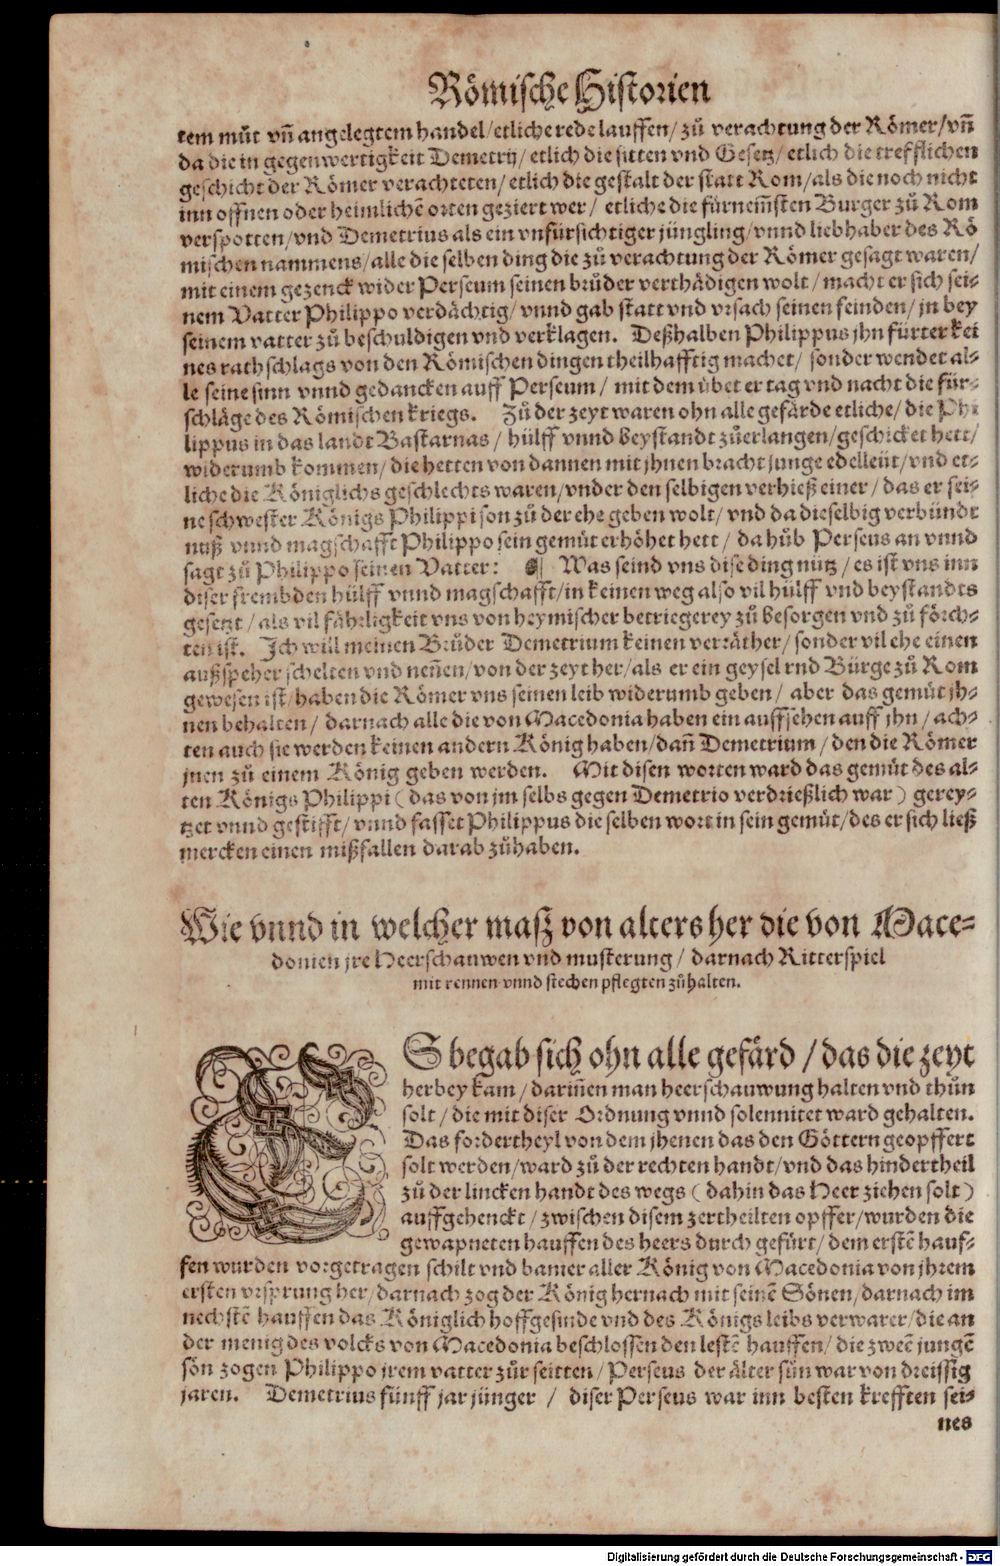 Römische Historien
tem můt vñ angelegtem handel/etliche rede lauffen/zů verachtung der Römer/vñ
da die in gegenwertigkeit Demetrij/etlich die sitten vnd Gesetz/etlich die trefflichen
geschicht der Römer verachteten/etlich die gestalt der statt Rom/als die noch nicht
inn offnen oder heimlichē orten geziert wer/ etliche die fürnem̃sten Burger zů Rom
verspotten/vnd Demetrius als ein vnfürsichtiger jüngling/vnnd liebhaber des Rö
mischen nammens/alle die selben ding die zů verachtung der Römer gesagt waren/
mit einem gezenck wider Perseum seinen brůder verthädigen wolt/macht er sich sei⸗
nem Vatter Philippo verdächtig/vnnd gab statt vnd vrsach seinen feinden/jn bey
seinem vatter zů beschuldigen vnd verklagen. Deßhalben Philippus jhn fürter kei
nes rathschlags von den Römischen dingen theilhafftig machet/ sonder wendet al⸗
le seine sinn vnnd gedancken auff Perseum/ mit dem übet er tag vnd nacht die für⸗
schläge des Römischen kriegs. Zů der zeyt waren ohn alle gefärde etliche/die Phi
lippus in das landt Bastarnas/ hülff vnnd beystandt zůerlangen/geschicket hett/
widerumb kommen/die hetten von dannen mit jhnen bracht junge edelleüt/vnd et⸗
liche die Königlichs geschlechts waren/vnder den selbigen verhieß einer/das er sei⸗
ne schwester Königs Philippi son zů der ehe geben wolt/vnd da dieselbig verbündt
nuß vnnd magschafft Philippo sein gemüt erhöhet hett/ da hůb Perseus an vnnd
sagt zů Philippo seinen Vatter: Was seind vns dise ding nütz/es ist vns inn
diser frembden hülff vnnd magschafft/in keinen weg also vil hülff vnd beystandts
gesetzt/als vil fährligkeit vns von heymischer betriegerey zů besorgen vnd zů förch⸗
ten ist. Ich will meinen Brůder Demetrium keinen verräther/sonder vil ehe einen
außspeher schelten vnd neñen/von der zeyt her/als er ein geysel vnd Bürge zů Rom
gewesen ist/haben die Römer vns seinen leib widerumb geben/ aber das gemüt jh⸗
nen behalten/ darnach alle die von Macedonia haben ein auffsehen auff jhn/ach⸗
ten auch sie werden keinen andern König haben/dañ Demetrium/den die Römer
jnen zů einem König geben werden. Mit disen worten ward das gemüt des al⸗
ten Königs Philippi (das von jm selbs gegen Demetrio verdrießlich war) gerey⸗
tzet vnnd gestifft/vnnd fasset Philippus die selben wort in sein gemüt/des er sich ließ
mercken einen mißfallen darab zůhaben.
Wie vnnd in welcher maß von alters her die von Mace⸗
donien jre Heerschauwen vnd musterung/ darnach Ritterspiel
mit rennen vnnd stechen pflegten zůhalten.
ES begab sich ohn alle gefärd/das die zeyt
herbey kam/dariñen man heerschauwung halten vnd thůn
solt/die mit diser Ordnung vnnd solennitet ward gehalten.
Das fordertheyl von dem jhenen das den Göttern geopffert
solt werden/ward zů der rechten handt/vnd das hindertheil
zů der lincken handt des wegs (dahin das Heer ziehen solt)
auffgehenckt/zwischen disem zertheilten opffer/wurden die
gewapneten hauffen des heers durch gefürt/dem erstē hauf⸗
fen wurden vorgetragen schilt vnd banier aller König von Macedonia von jhrem
ersten vrsprung her/darnach zog der König hernach mit seinē Sönen/darnach im
nechstē hauffen das Königlich hoffgesinde vnd des Königs leibs verwarer/die an
der menig des volcks von Macedonia beschlossen den lestē hauffen/die zweē jungē
sön zogen Philippo jrem vatter zůr seitten/Perseus der älter sün war von dreissig
jaren. Demetrius fünff jar jünger / diser Perseus war inn besten krefften sei⸗
nes
Digitalisierung gefördert durch die Deutsche Forschungsgemeinschaft - DFG